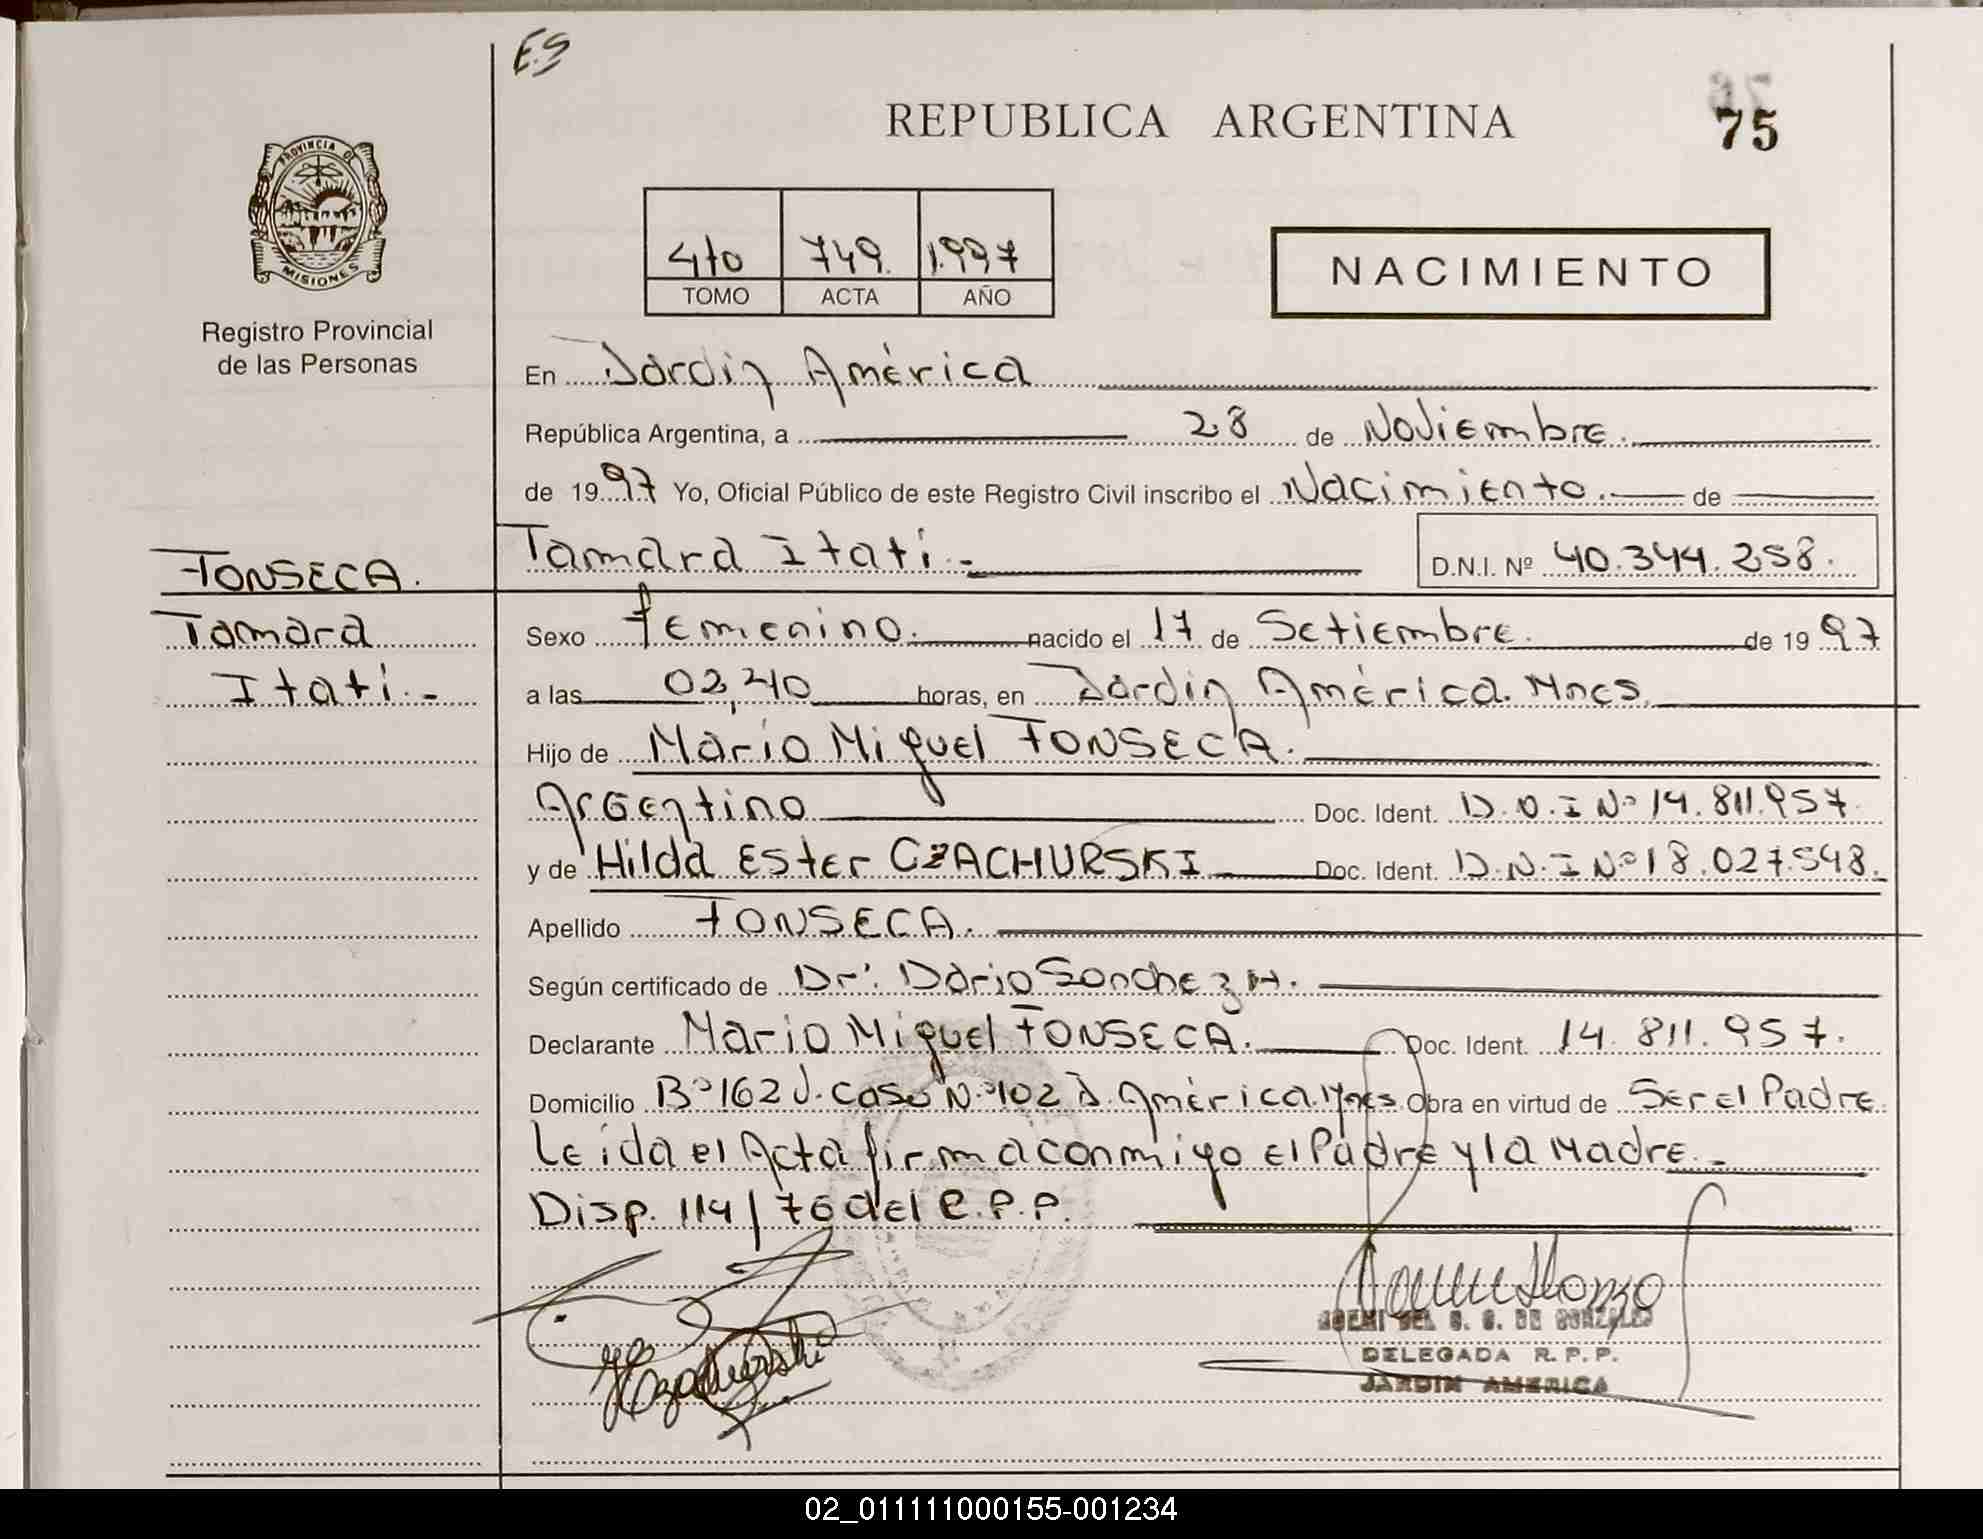 E.S
REPUBLICA ARGENTINA
75
PROVINCIA DE
MISIONES
Registro Provincial
de las Personas
4to 749. 1.997
TOMO ACTA AÑO
NACIMIENTO
En Jardin América
República Argentina, a 28 de Noviembre.
de 1997 Yo, Oficial Público de este Registro Civil inscribo el Nacimiento. de
Tamara Itatí.- D.N.I. Nº 40.344.258.
FONSECA.
Tamara
Itatí.-
Sexo femenino. nacido el 17 de Setiembre. de 1997
a las 02,40 horas, en Jardin América. Mnes.
Hijo de Mario Miguel FONSECA.
Argentino Doc. Ident. D.N.I Nº 14.811.957.
y de Hilda Ester CZACHURSKI Doc. Ident. D.N.I Nº 18.027.548.
Apellido FONSECA.
Según certificado de Dr: Dario Sanchez H.
Declarante Mario Miguel FONSECA. Doc. Ident. 14.811.957.
Domicilio Bº 162 V. Casa N.º 102 J. América. Mnes. Obra en virtud de Ser el Padre
Leída el Acta firma conmigo el Padre y la Madre.-
Disp. 114/76 del R.P.P.
DELEGADA R. P. P.
JARDIN AMERICA
02_011111000155-001234